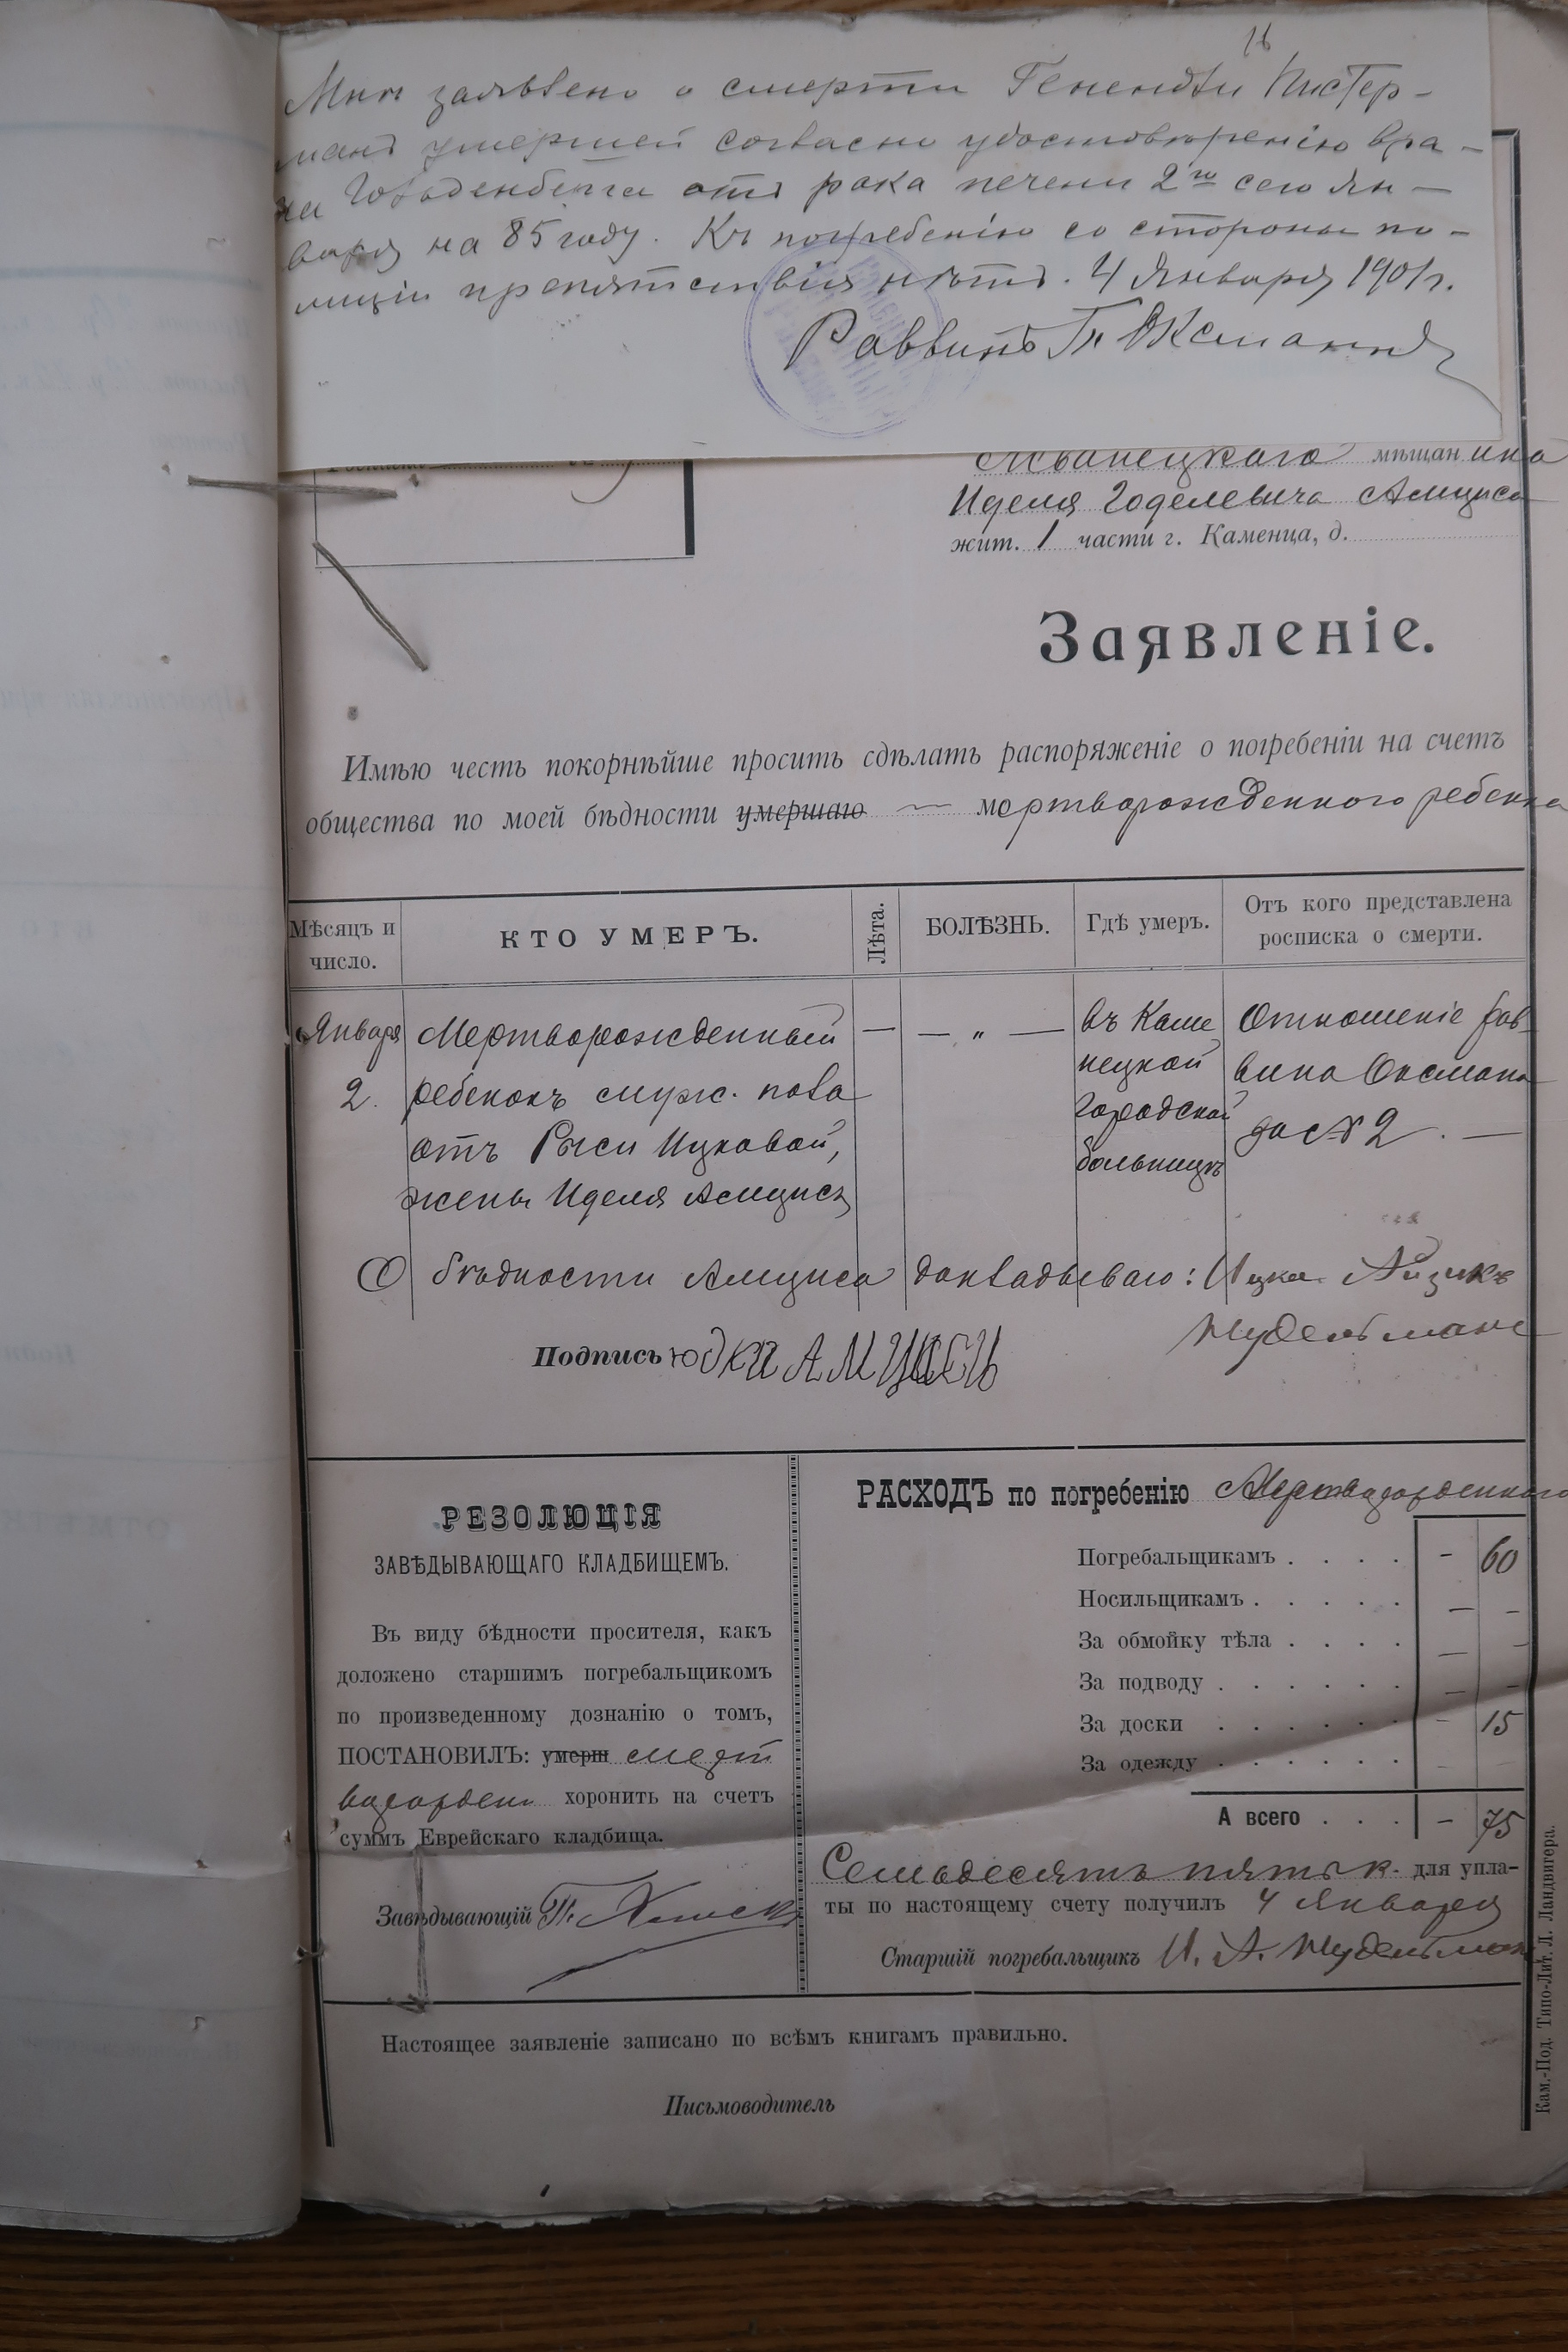 16
Мнѣ заявлено о смерти Генендли Пистер-
манъ умершей согласно удостовѣренію вра-
ча Гольденберга отъ рака печени 2го сего Ян-
варя на 85 году. Къ погребенію со стороны по-
лиціи препятствія нѣтъ. 4 Января 1901 г.
Раввинъ Г. Оксманнъ
Жванецкаго мѣщанина
Иделя Годелевича Амциса
жит. 1 части г. Каменца, д.
Заявленіе.
Имѣю честь покорнѣйше просить сдѣлать распоряженіе о погребеніи на счетъ
общества по моей бѣдности умершаго — мертворожденного ребенка
Мѣсяцъ и число. КТО УМЕРЪ. Лѣта. БОЛѢЗНЬ. Гдѣ умеръ. Отъ кого представлена росписка о смерти.
Января Мертворожденный — — „ — въ Каме Отношеніе рав-
2. ребенокъ муж. пола нецкой вина Оксмана
отъ Рыси Ицковой, городской за № 2. —
жены Иделя Амциса больницѣ
О бѣдности Амциса докладываю: Ицка Айзикъ
Нудельманъ
Подпись юдка АМЦИСЬ
РЕЗОЛЮЦІЯ
ЗАВѢДЫВАЮЩАГО КЛАДБИЩЕМЪ.
Въ виду бѣдности просителя, какъ
доложено старшимъ погребальщикомъ
по произведенному дознанію о томъ,
ПОСТАНОВИЛЪ: умерш мерт
ворожден хоронить на счетъ
суммъ Еврейскаго кладбища.
Завѣдывающій
РАСХОДЪ по погребенію Мертворожденного
Погребальщикамъ . . . . - 60
Носильщикамъ . . . . . — -
За обмойку тѣла . . . . — -
За подводу . . . . . . — -
За доски . . . . . . - 15
За одежду . . . . . . - -
А всего . . . - 75
Семьдесятъ пять к. для упла-
ты по настоящему счету получилъ 4 Января
Старшій погребальщикъ И. А. Нудельман
Настоящее заявленіе записано по всѣмъ книгамъ правильно.
Письмоводитель
Кам.-Под. Типо-Лит. Л. Ландвигера.